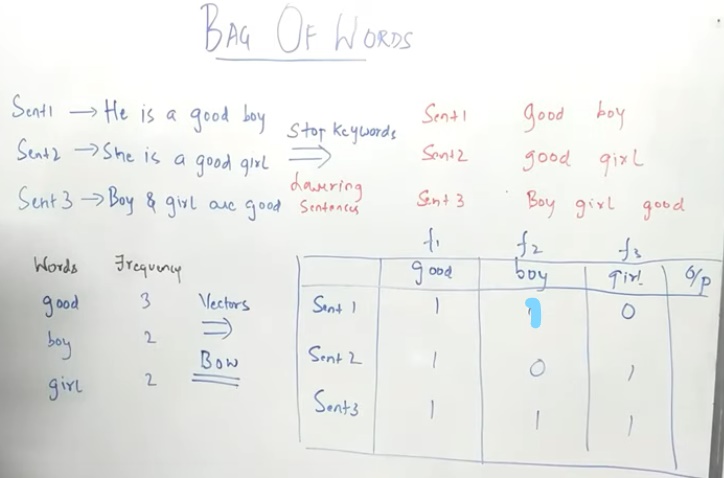 BAG OF WORDS
Sent1 → He is a good boy
Sent2 → She is a good girl
Sent3 → Boy & girl are good
Stop Keywords
⇒
Lowering
Sentences
Sent1 good boy
Sent2 good girl
Sent 3 Boy girl good
Words Frequency
good 3
boy 2
girl 2
Vectors
⇒
BOW
f1 f2 f3
good boy girl O/p
Sent 1 1 1 0
Sent 2 1 0 1
Sent3 1 1 1